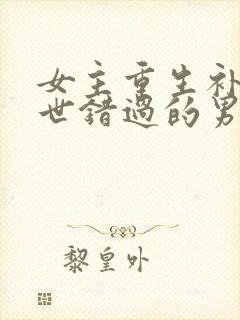 女主重生补
世错过的男
黎皇外